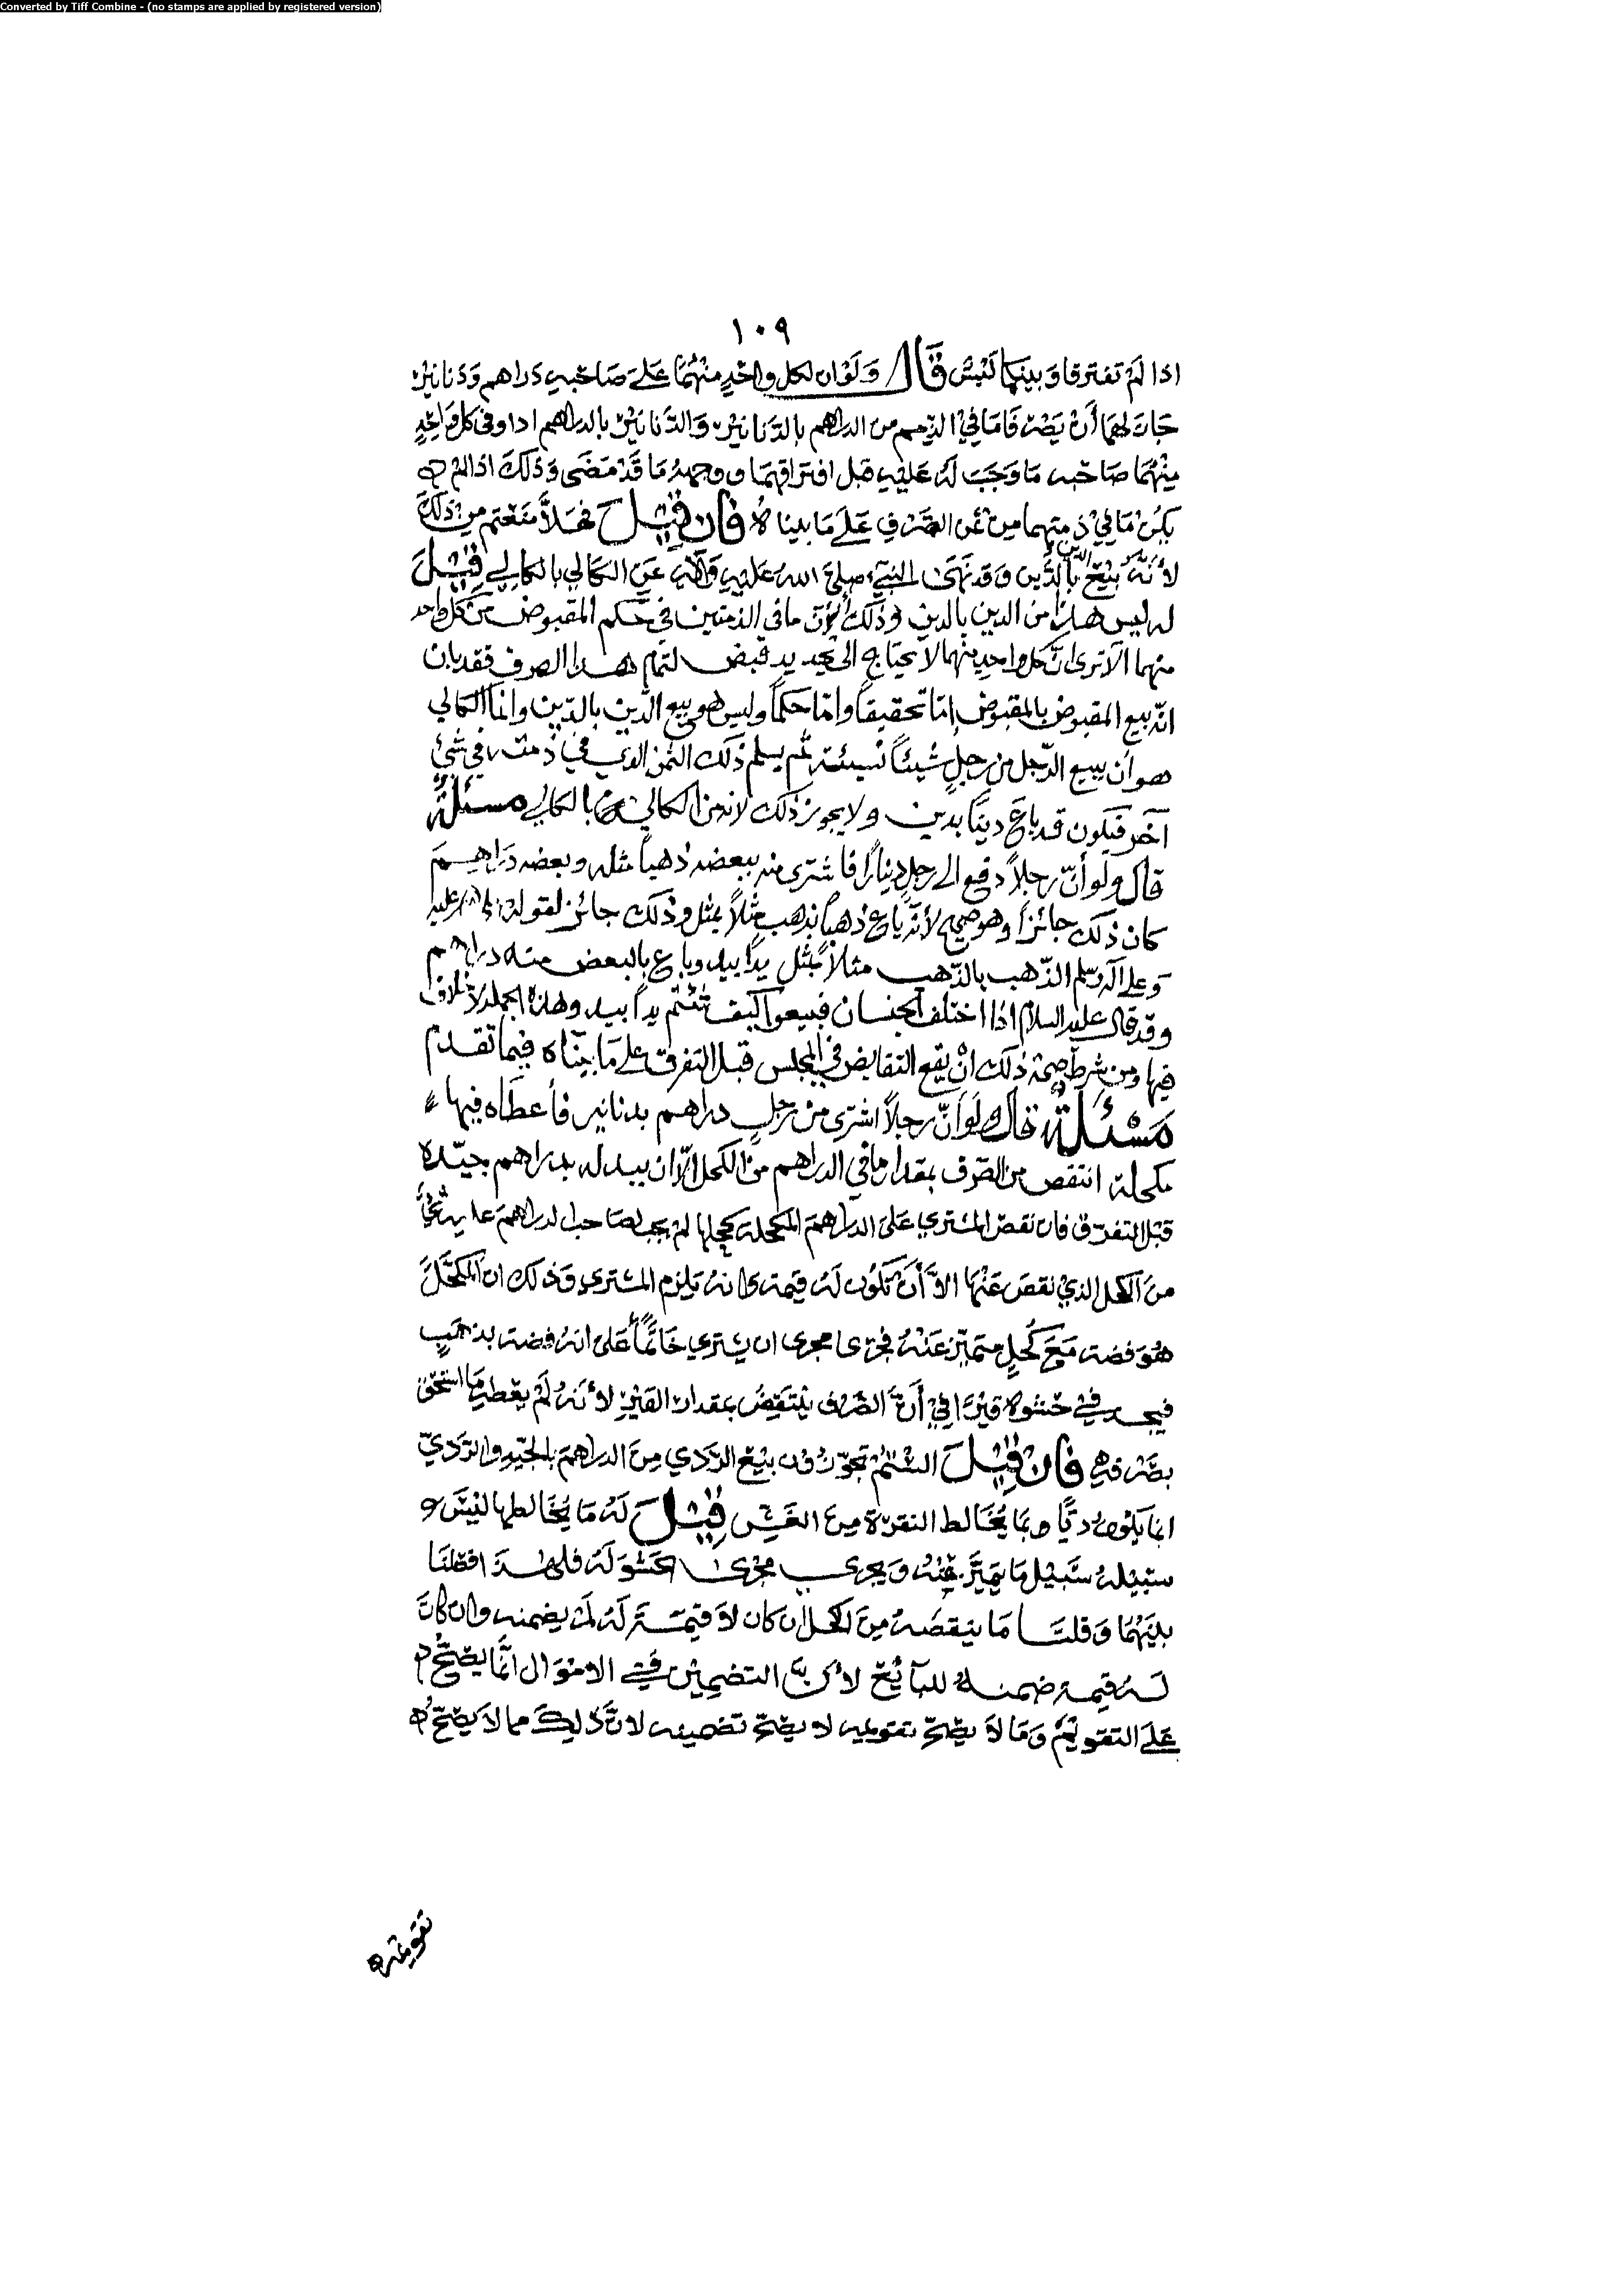 Converted by Tiff Combine - (no stamps are applied by registered version)
١٠٩
اذا لم تفترقا وبينكما لبس قال ولو ان لكل واحد منهما على صاحبه دراهم ودنانير
جاز لهما أن يصرفا ما في الذمم من الدراهم بالدنانير والدنانير بالدراهم اذا وفى كل واحد
منهما صاحبه ما وجب له عليه قبل افتراقهما ووجهه ما قد مضى وذلك اذا لم
يكن ما في ذمتهما من ثمن الصرف على ما بيناه فان قيل فهلا منعتم من ذلك
لأنه بيع الدين بالدين وقد نهى النبي صلى الله عليه وآله عن الكالي بالكالي قيل
له ليس هذا من الدين بالدين وذلك لأن ما في الذمتين في حكم المقبوض من كل واحد
منهما الا ترى ان كل واحد منهما لا يحتاج الى تجديد قبض لتمام هذا الصرف فقد بان
انه بيع المقبوض بالمقبوض إما تحقيقاً واما حكماً وليس هو بيع الدين بالدين وانما الكالي
هو أن يبيع الرجل من رجل شيئاً نسيئة ثم يسلم ذلك الثمن الذي في ذمته في شيء
آخر فيكون قد باع ديناً بدين ولا يجوز ذلك لانه من الكالي بالكالي مسئلة
قال ولو أن رجلاً دفع الى رجل ديناراً فاشترى منه ببعضه ذهباً مثله وبعضه دراهم
كان ذلك جائزاً وهو صحيح لأنه باع ذهباً بذهب مثلاً بمثل وذلك جائز لقوله صلى الله عليه
وعلى آله وسلم الذهب بالذهب مثلاً بمثل يداً بيد وباع بالبعض منه دراهم
وقد قال عليه السلام اذا اختلف الجنسان فبيعوا كيف شئتم يداً بيد وهذه الجملة لا خلاف
فيها ومن شرط صحة ذلك أن يقع التقابض في المجلس قبل التفرق على ما بيناه فيما تقدم
مسئلة قال ولو أن رجلاً اشترى من رجل دراهم بدنانير فأعطاه فيها
مكحلة انتقص من الصرف بمقدار ما في الدراهم من الكحل الا ان يبدله بدراهم جيدة
قبل التفرق فان نقص المشتري على الدراهم المكحلة كحلها لم يجب لصاحب الدراهم عليه شيء
من الكحل الذي نقص عنها الا أن تكون له قيمة فانه يلزم المشتري وذلك ان المكحل
هو فضة مع كحل متميز عنه فجرى مجرى ان يشتري خاتماً على انه فضة بذهب
فيجد في حشوه قيراً في أن الصرف ينتقض بمقدار القير لأنه لم يعطه ما استحق
بصرفه فان قيل الستم تجوزون بيع الردي من الدراهم بالجيد والردي
انما يكون رديا بما يخالط النقرة من الغش قيل له ما يخالطها ليس
سبيله سبيل ما تميز عنه ويجري مجرى الحشو له فلهذا فصلنا
بينهما وقلنا ما ينقصه من الكحل ان كان لا قيمة له لم يضمنه وان كان
له قيمة ضمنه للبائع لأن التضمين في الاموال انما يصح
على التقويم وما لا يصح تقويمه لا يصح تضمينه لان ذلك مما لا يصح
تقويمه